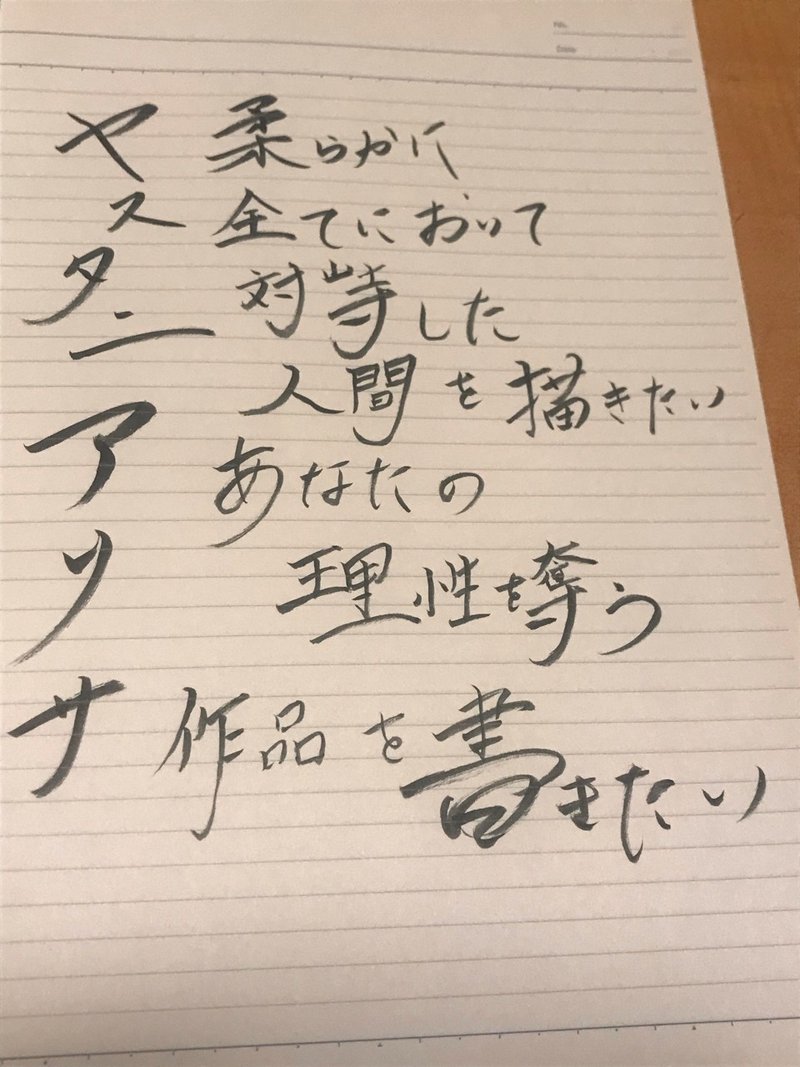 ヤ 柔らかに
ス 全てにおいて
タ 対峙した
ニ 人間を描きたい
ア あなたの
リ 理性を奪う
サ 作品を書きたい
No.
Date